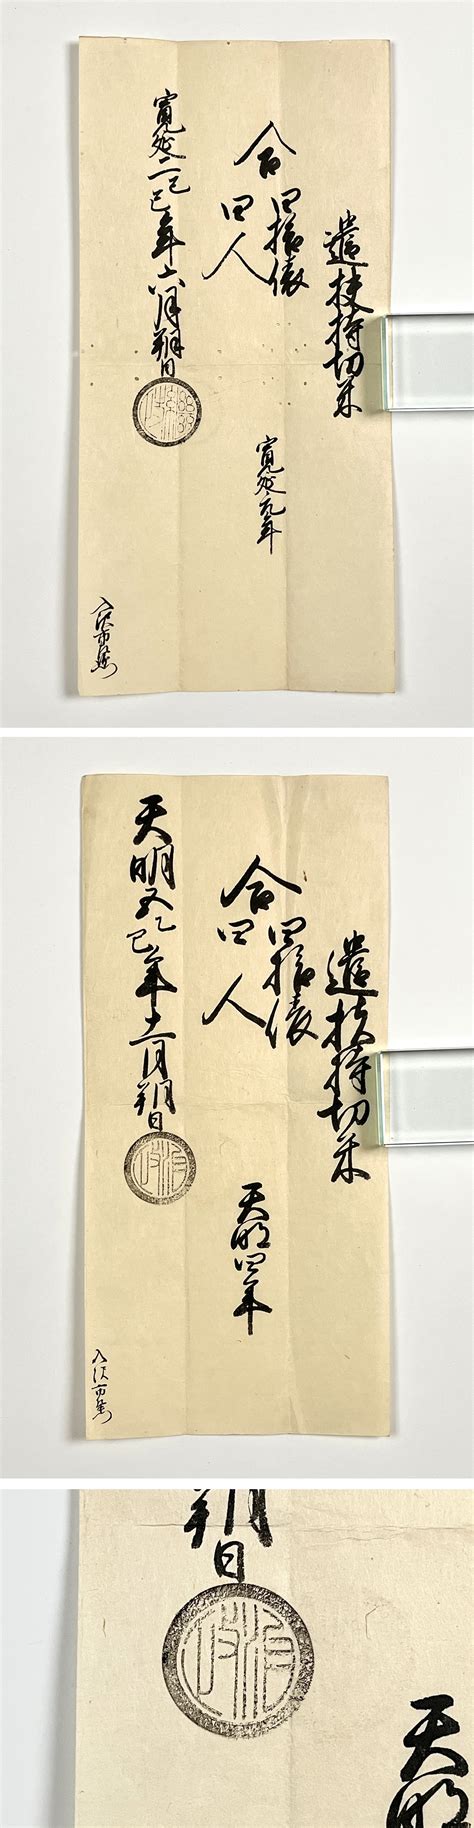 遣扶持切米
合
四拾俵
四人
寛延元年
寛延二己巳年六月朔日
遣扶持切米
合
四拾俵
四人
天明四年
天明五乙巳年十一月朔日
朔日
天明